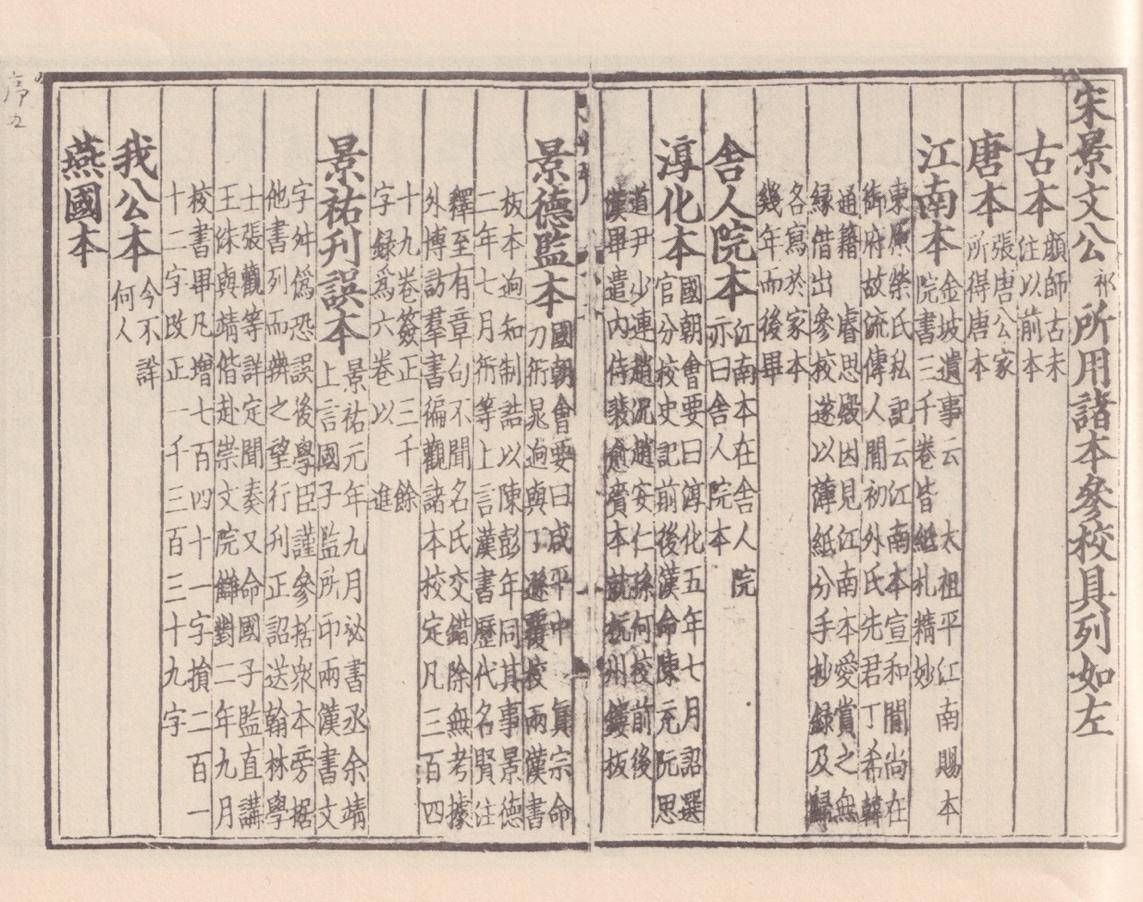 宋景文公祁所用諸本參校具列如左
古本
顔師古未
注以前本
唐本
張唐公家
所得唐本
江南本
金坡遺事云 太祖平江南賜本
院書三千卷皆紙札精妙
東原榮氏私記云江南本宣和間尚在
御府故流傳人間初外氏先君丁希韓
通籍 睿思殿因見江南本愛賞之無
縁借出參校遂以薄紙分手抄録及歸
各寫於家本
幾年而後畢
舍人院本
江南本在舍人院
亦曰舍人院本
淳化本
國朝會要曰淳化五年七月詔選
官分校史記前後漢命陳充阮思
道尹少連趙况趙安仁孫何校前後
漢畢遣内侍裴愈賫本就杭州鏤板
景德監本
國朝會要曰咸平中 真宗命
刁衎晁迥與丁遜覆校兩漢書
板本迥知制誥以陳彭年同其事景德
二年七月衎等上言漢書歷代名賢注
釋至有章句不聞名氏交錯除無考據
外博訪羣書徧觀諸本校定凡三百四
十九卷簽正三千餘
字録爲六卷以 進
景祐刊誤本
景祐元年九月祕書丞余靖
上言國子監所印兩漢書文
字舛僞恐誤後學臣謹參括衆本旁据
他書列而辨之望行刊正詔送翰林學
士張觀等詳定聞奏又命國子監直講
王洙與靖偕赴崇文院讎對二年九月
校書畢凡增七百四十一字損二百一
十二字改正一千三百三十九字
我公本
今不詳
何人
燕國本